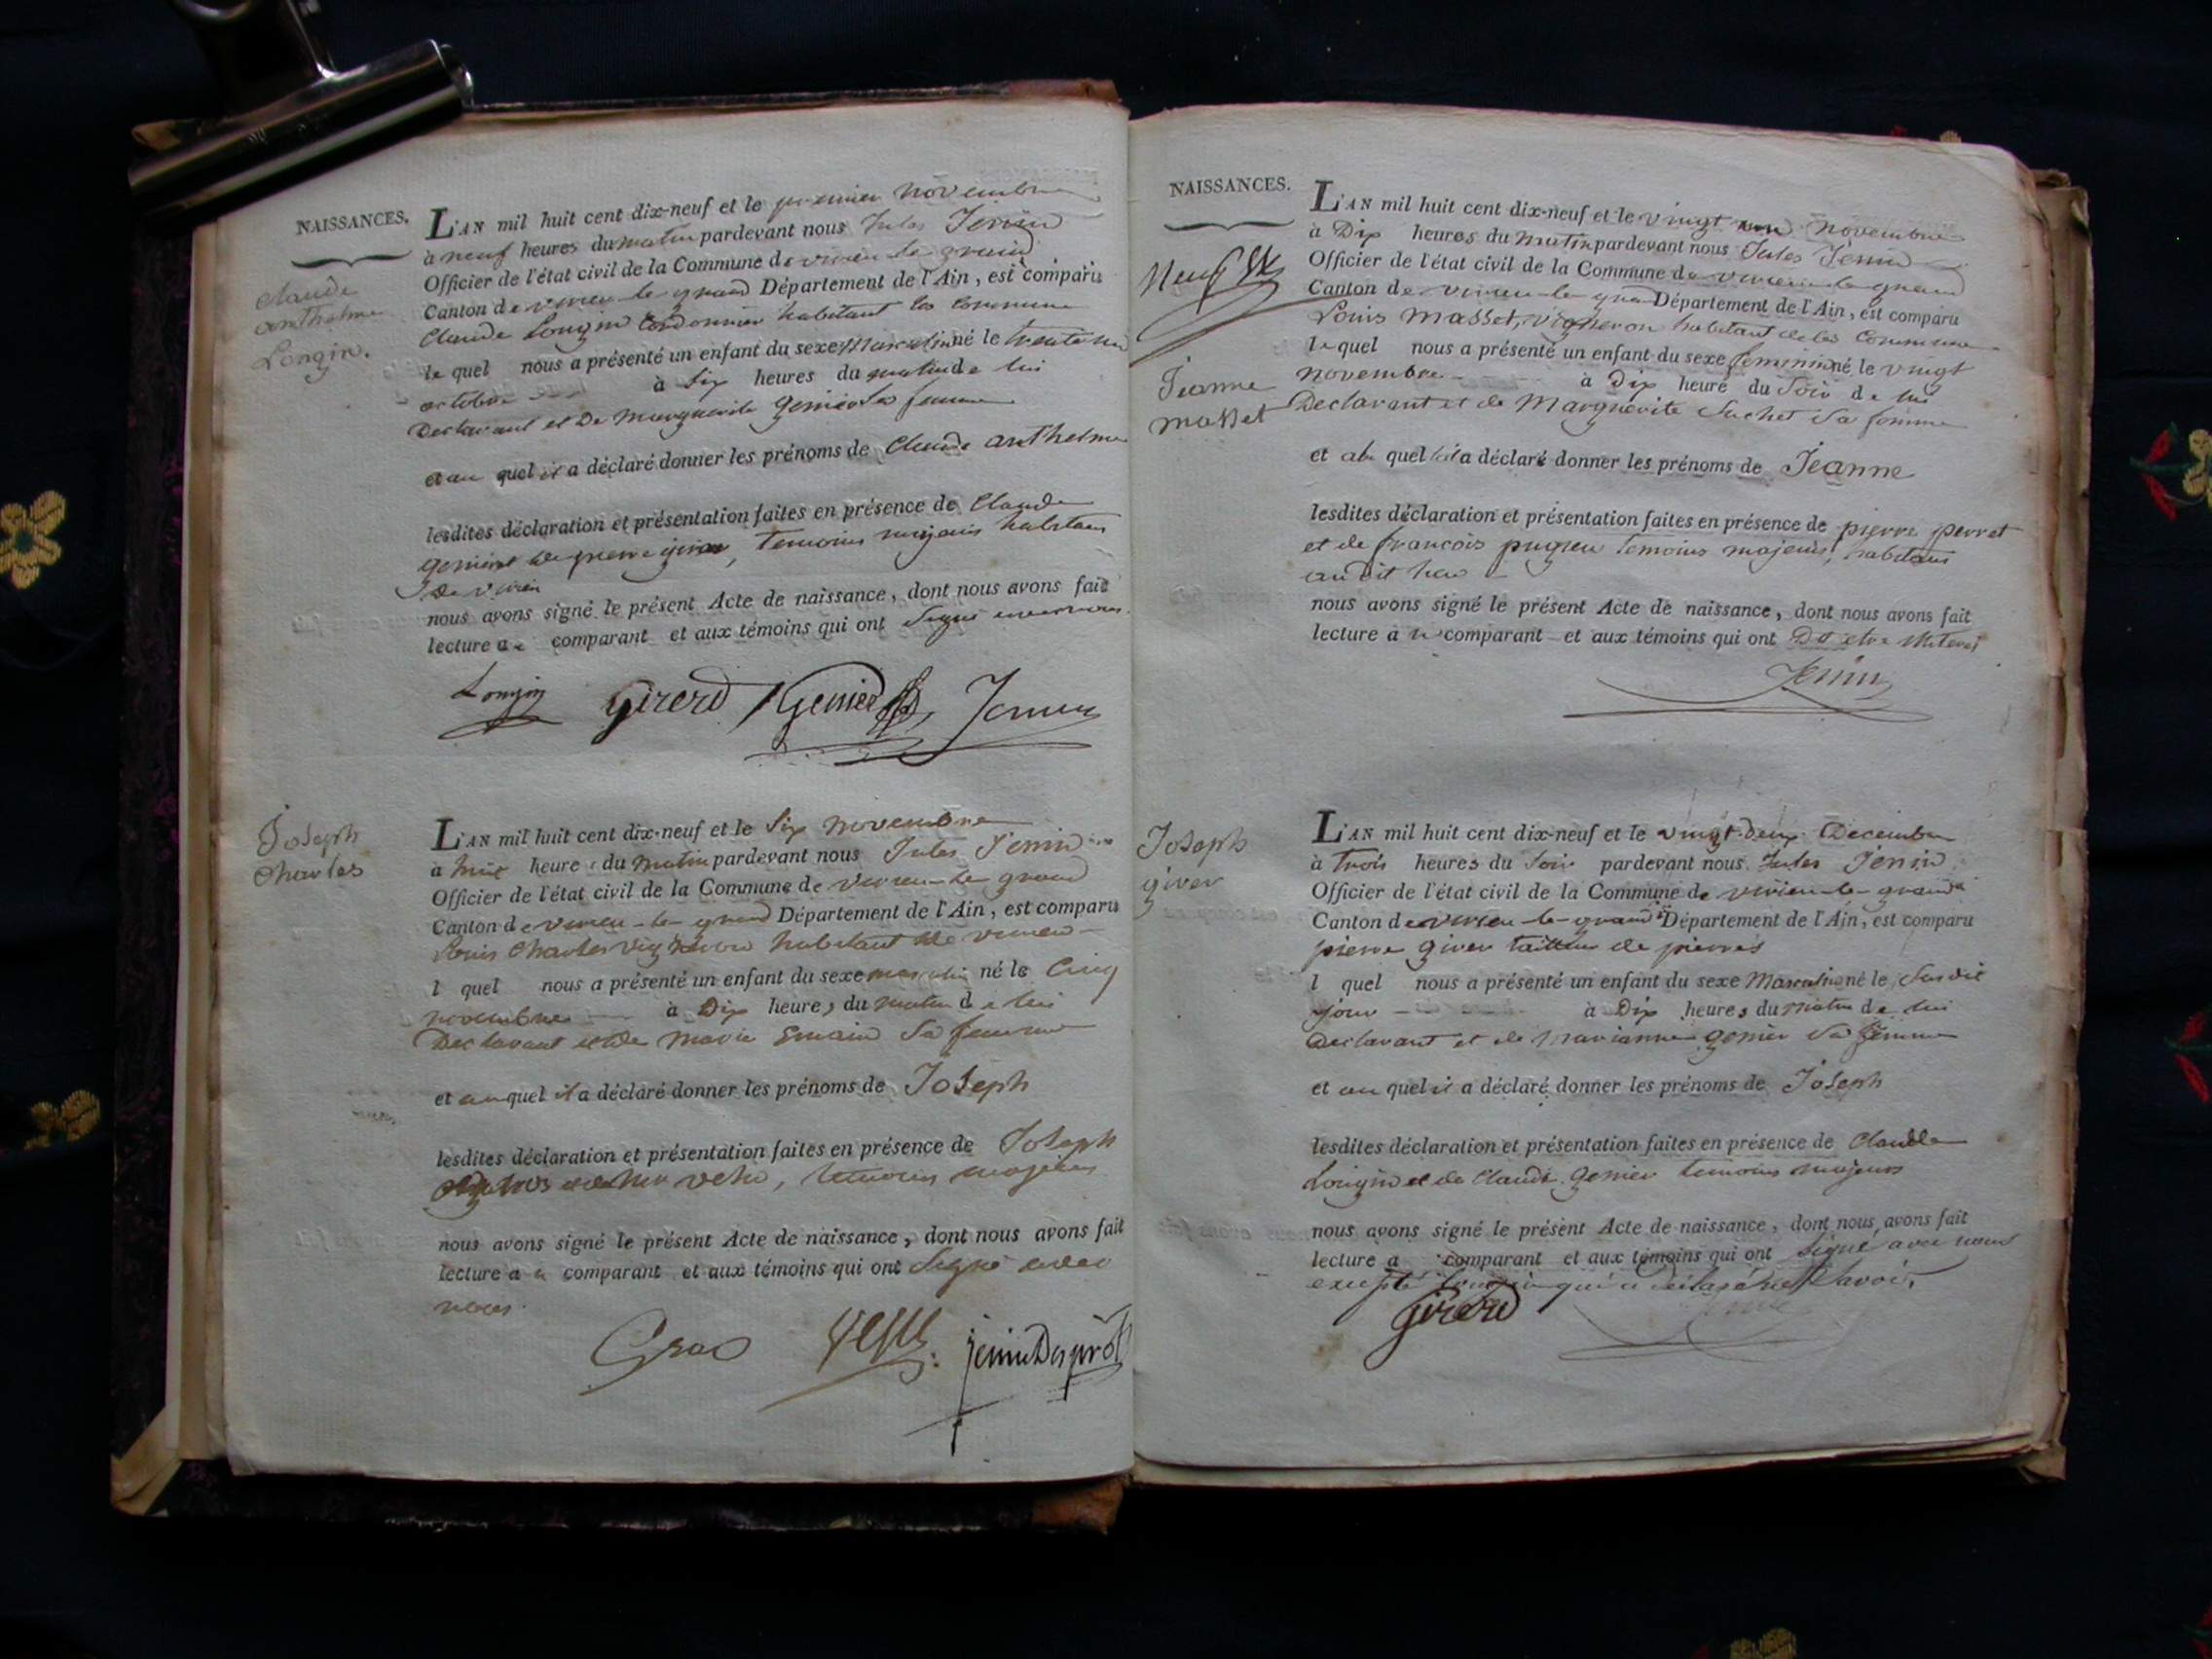 NAISSANCES.
claude
anthelme
Longin.
L'AN mil huit cent dix-neuf et le premier novembre
à neuf heures du matin pardevant nous Jules Jenin
Officier de l'état civil de la Commune de virieu le grand
Canton de virieu-le-grand Département de l'Ain, est comparu
Claude Longin Cordonnier habitant la commune
le quel nous a présenté un enfant du sexe Masculin né le trente un
octobre à Six heures du matin de lui
Declarant et De Marguerite Genier Sa femme
et au quel il a déclaré donner les prénoms de Claude anthelme
lesdites déclaration et présentation faites en présence de Claude
temoins majeurs habitans
de virieu
nous avons signé le présent Acte de naissance, dont nous avons fait
lecture a comparant et aux témoins qui ont Signé avec nous.
Longin Girerd Genier Jenin
Joseph
Charles
L'AN mil huit cent dix-neuf et le Six novembre
à huit heures du matin pardevant nous Jules Jenin
Officier de l'état civil de la Commune de virieu-le-grand
Canton de virieu-le-grand Département de l'Ain, est comparu
Louis Charles vigneron habitant de virieu
l quel nous a présenté un enfant du sexe masculin né le Cinq
novembre à Dix heures du matin de lui
Declarant et de Marie Sa femme
et au quel il a déclaré donner les prénoms de Joseph
lesdites déclaration et présentation faites en présence de Joseph
temoins majeurs
nous avons signé le présent Acte de naissance, dont nous avons fait
lecture a comparant et aux témoins qui ont Signé avec
nous.
NAISSANCES.
Jeanne
masset
L'AN mil huit cent dix-neuf et le vingt un novembre
à Dix heures du matin pardevant nous Jules Jenin
Officier de l'état civil de la Commune de virieu-le-grand
Canton de virieu-le-grand Département de l'Ain, est comparu
Louis Masset, vigneron habitant de la Commune
lequel nous a présenté un enfant du sexe feminin né le vingt
novembre à Dix heure du Soir de lui
Declarant et de Marguerite Suchet Sa femme
et a quel il a déclaré donner les prénoms de Jeanne
lesdites déclaration et présentation faites en présence de pierre perret
et de françois pugieu temoins majeurs, habitans
audit lieu
nous avons signé le présent Acte de naissance, dont nous avons fait
lecture a comparant et aux témoins qui ont
Jenin
Joseph
girer
L'AN mil huit cent dix-neuf et le vingt-deux Decembre
à trois heures du Soir pardevant nous Jules Jenin
Officier de l'état civil de la Commune de virieu-le-grand
Canton de virieu-le-grand Département de l'Ain, est comparu
pierre girer tailleur de pierres
l quel nous a présenté un enfant du sexe Masculin né le Susdit
jour à Dix heures du Matin de lui
Declarant et de marianne genier Sa femme
et au quel il a déclaré donner les prénoms de Joseph
lesdites déclaration et présentation faites en présence de Claude
Longin et de Claude Genier temoins majeurs
nous avons signé le présent Acte de naissance, dont nous avons fait
lecture a comparant et aux témoins qui ont Signé avec nous
excepté Longin qui a Savoir
Girerd